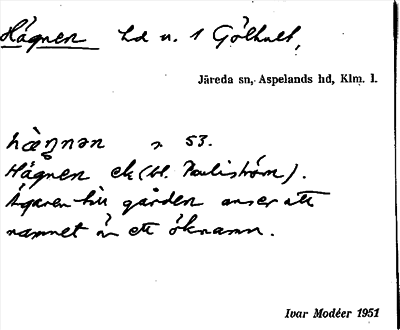 Hägnen hd u. 1 Gölhult,
Järeda sn, Aspelands hd, Klm. l.
hæŋnən 53.
Hägnen ek (bl. Pauliström).
Ägaren till gården anser att
namnet är ett öknamn.
Ivar Modéer 1951